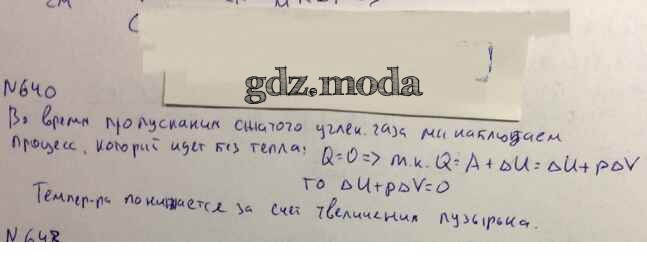 gdz.moda
N640
Во время пропускания сжатого углек. газа ми наблюдаем
процесс, который идет без тепла: Q=0=> т.к. Q=A+ΔU=ΔU+pΔV
то ΔU+pΔV=0
Темпер-ра понижается за счет увеличения пузырька.
N648